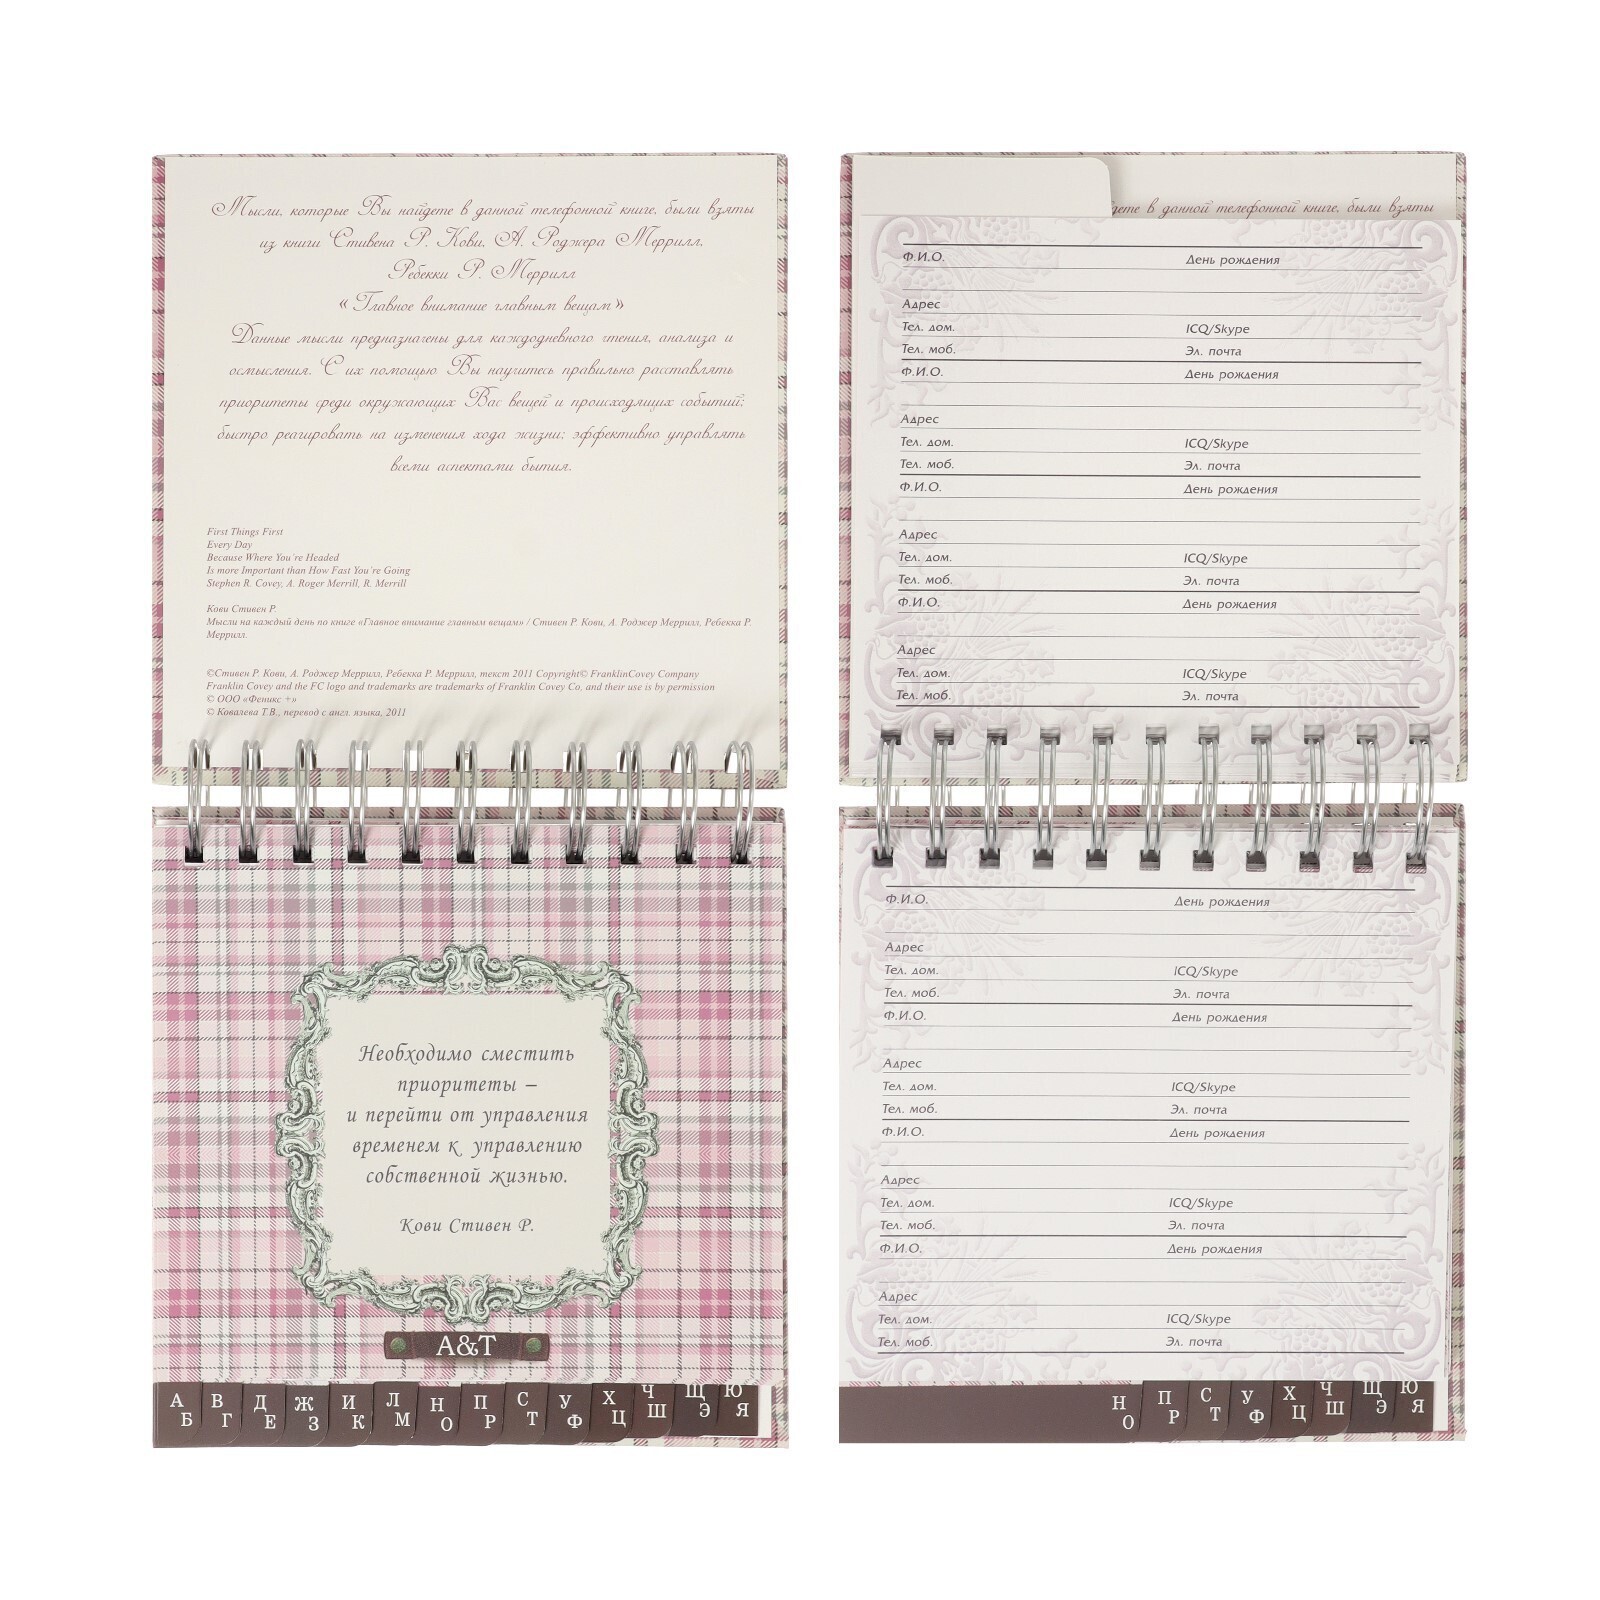 Мысли, которые Вы найдете в данной телефонной книге, были взяты
из книги Стивена Р. Кови, А. Роджера Меррилл,
Ребекки Р. Меррилл
«Главное внимание главным вещам»
Данные мысли предназначены для каждодневного чтения, анализа и
осмысления. С их помощью Вы научитесь правильно расставлять
приоритеты среди окружающих Вас вещей и происходящих событий;
быстро реагировать на изменения хода жизни; эффективно управлять
всеми аспектами бытия.
First Things First
Every Day
Because Where You're Headed
Is more Important than How Fast You're Going
Stephen R. Covey, A. Roger Merrill, R. Merrill
Кови Стивен Р.
Мысли на каждый день по книге «Главное внимание главным вещам» / Стивен Р. Кови, А. Роджер Меррилл, Ребекка Р.
Меррилл.
©Стивен Р. Кови, А. Роджер Меррилл, Ребекка Р. Меррилл, текст 2011 Copyright© FranklinCovey Company
Franklin Covey and the FC logo and trademarks are trademarks of Franklin Covey Co, and their use is by permission
© ООО «Феникс +»
© Ковалева Т.В., перевод с англ. языка, 2011
Необходимо сместить
приоритеты –
и перейти от управления
временем к управлению
собственной жизнью.
Кови Стивен Р.
A&T
А Б В Г Д Е Ж З И К Л М Н О П Р С Т У Ф Х Ц Ч Ш Щ Э Ю Я
йдете в данной телефонной книге, были взяты
Ф.И.О. День рождения
Адрес
Тел. дом. ICQ/Skype
Тел. моб. Эл. почта
Ф.И.О. День рождения
Адрес
Тел. дом. ICQ/Skype
Тел. моб. Эл. почта
Ф.И.О. День рождения
Адрес
Тел. дом. ICQ/Skype
Тел. моб. Эл. почта
Ф.И.О. День рождения
Адрес
Тел. дом. ICQ/Skype
Тел. моб. Эл. почта
Ф.И.О. День рождения
Адрес
Тел. дом. ICQ/Skype
Тел. моб. Эл. почта
Ф.И.О. День рождения
Адрес
Тел. дом. ICQ/Skype
Тел. моб. Эл. почта
Ф.И.О. День рождения
Адрес
Тел. дом. ICQ/Skype
Тел. моб. Эл. почта
Ф.И.О. День рождения
Адрес
Тел. дом. ICQ/Skype
Тел. моб. Эл. почта
Н О П Р С Т У Ф Х Ц Ч Ш Щ Э Ю Я